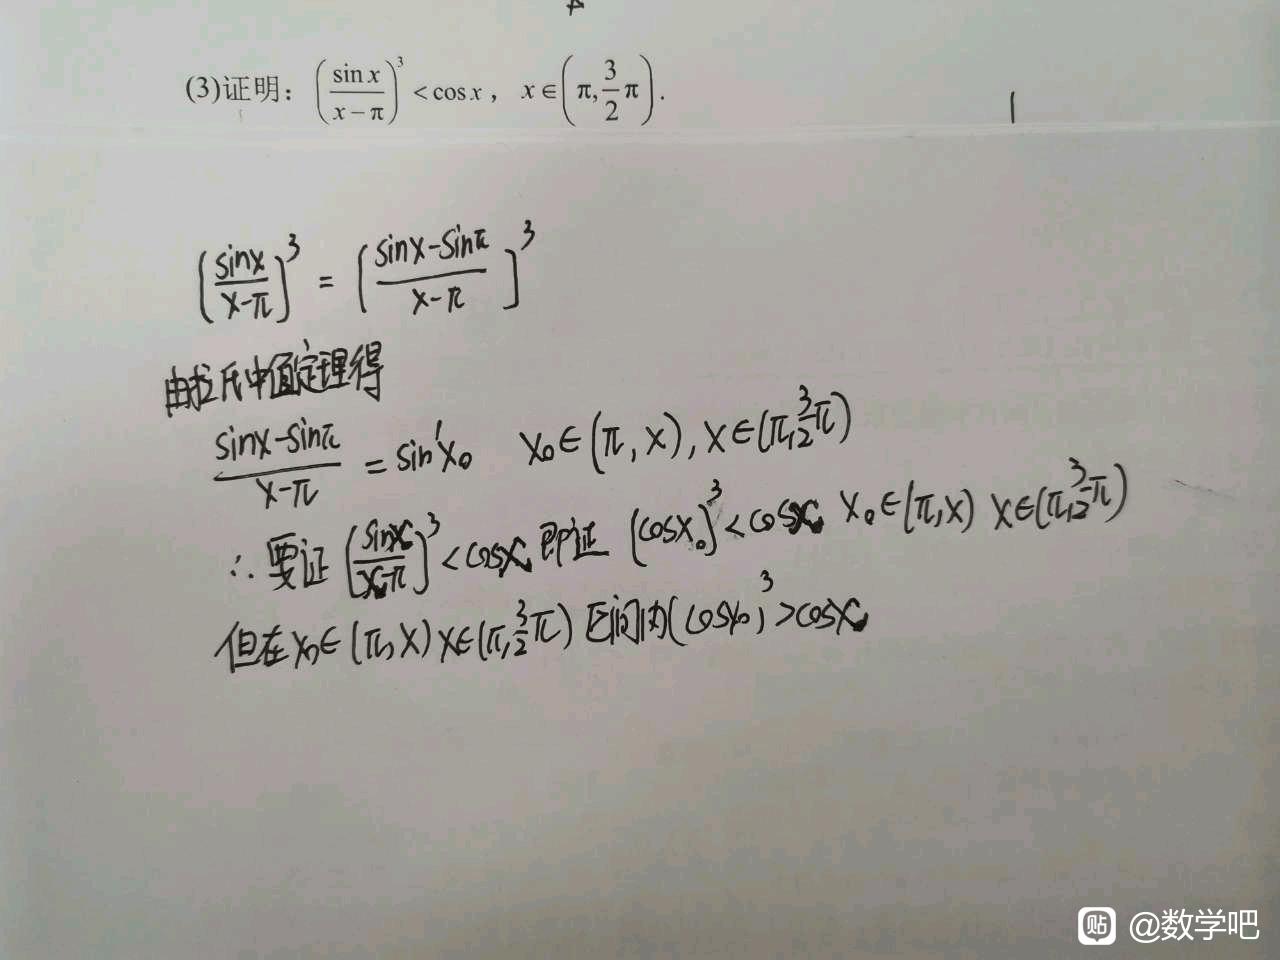 (3)证明：(sin x / x − π)³ < cos x， x ∈ (π, 3/2 π).
(sinx / x-π)³ = [sinx-sinπ / x-π]³
由拉氏中值定理得
sinx-sinπ / x-π = sin'x₀ x₀∈(π, x), x∈(π, 3/2 π)
∴ 要证 (sinx / x-π)³ < cosx 即证 (cosx₀)³ < cosx x₀∈(π, x) x∈(π, 3/2 π)
但在 x₀∈(π, x) x∈(π, 3/2 π) 区间内 (cosx₀)³ > cosx
贴 @数学吧